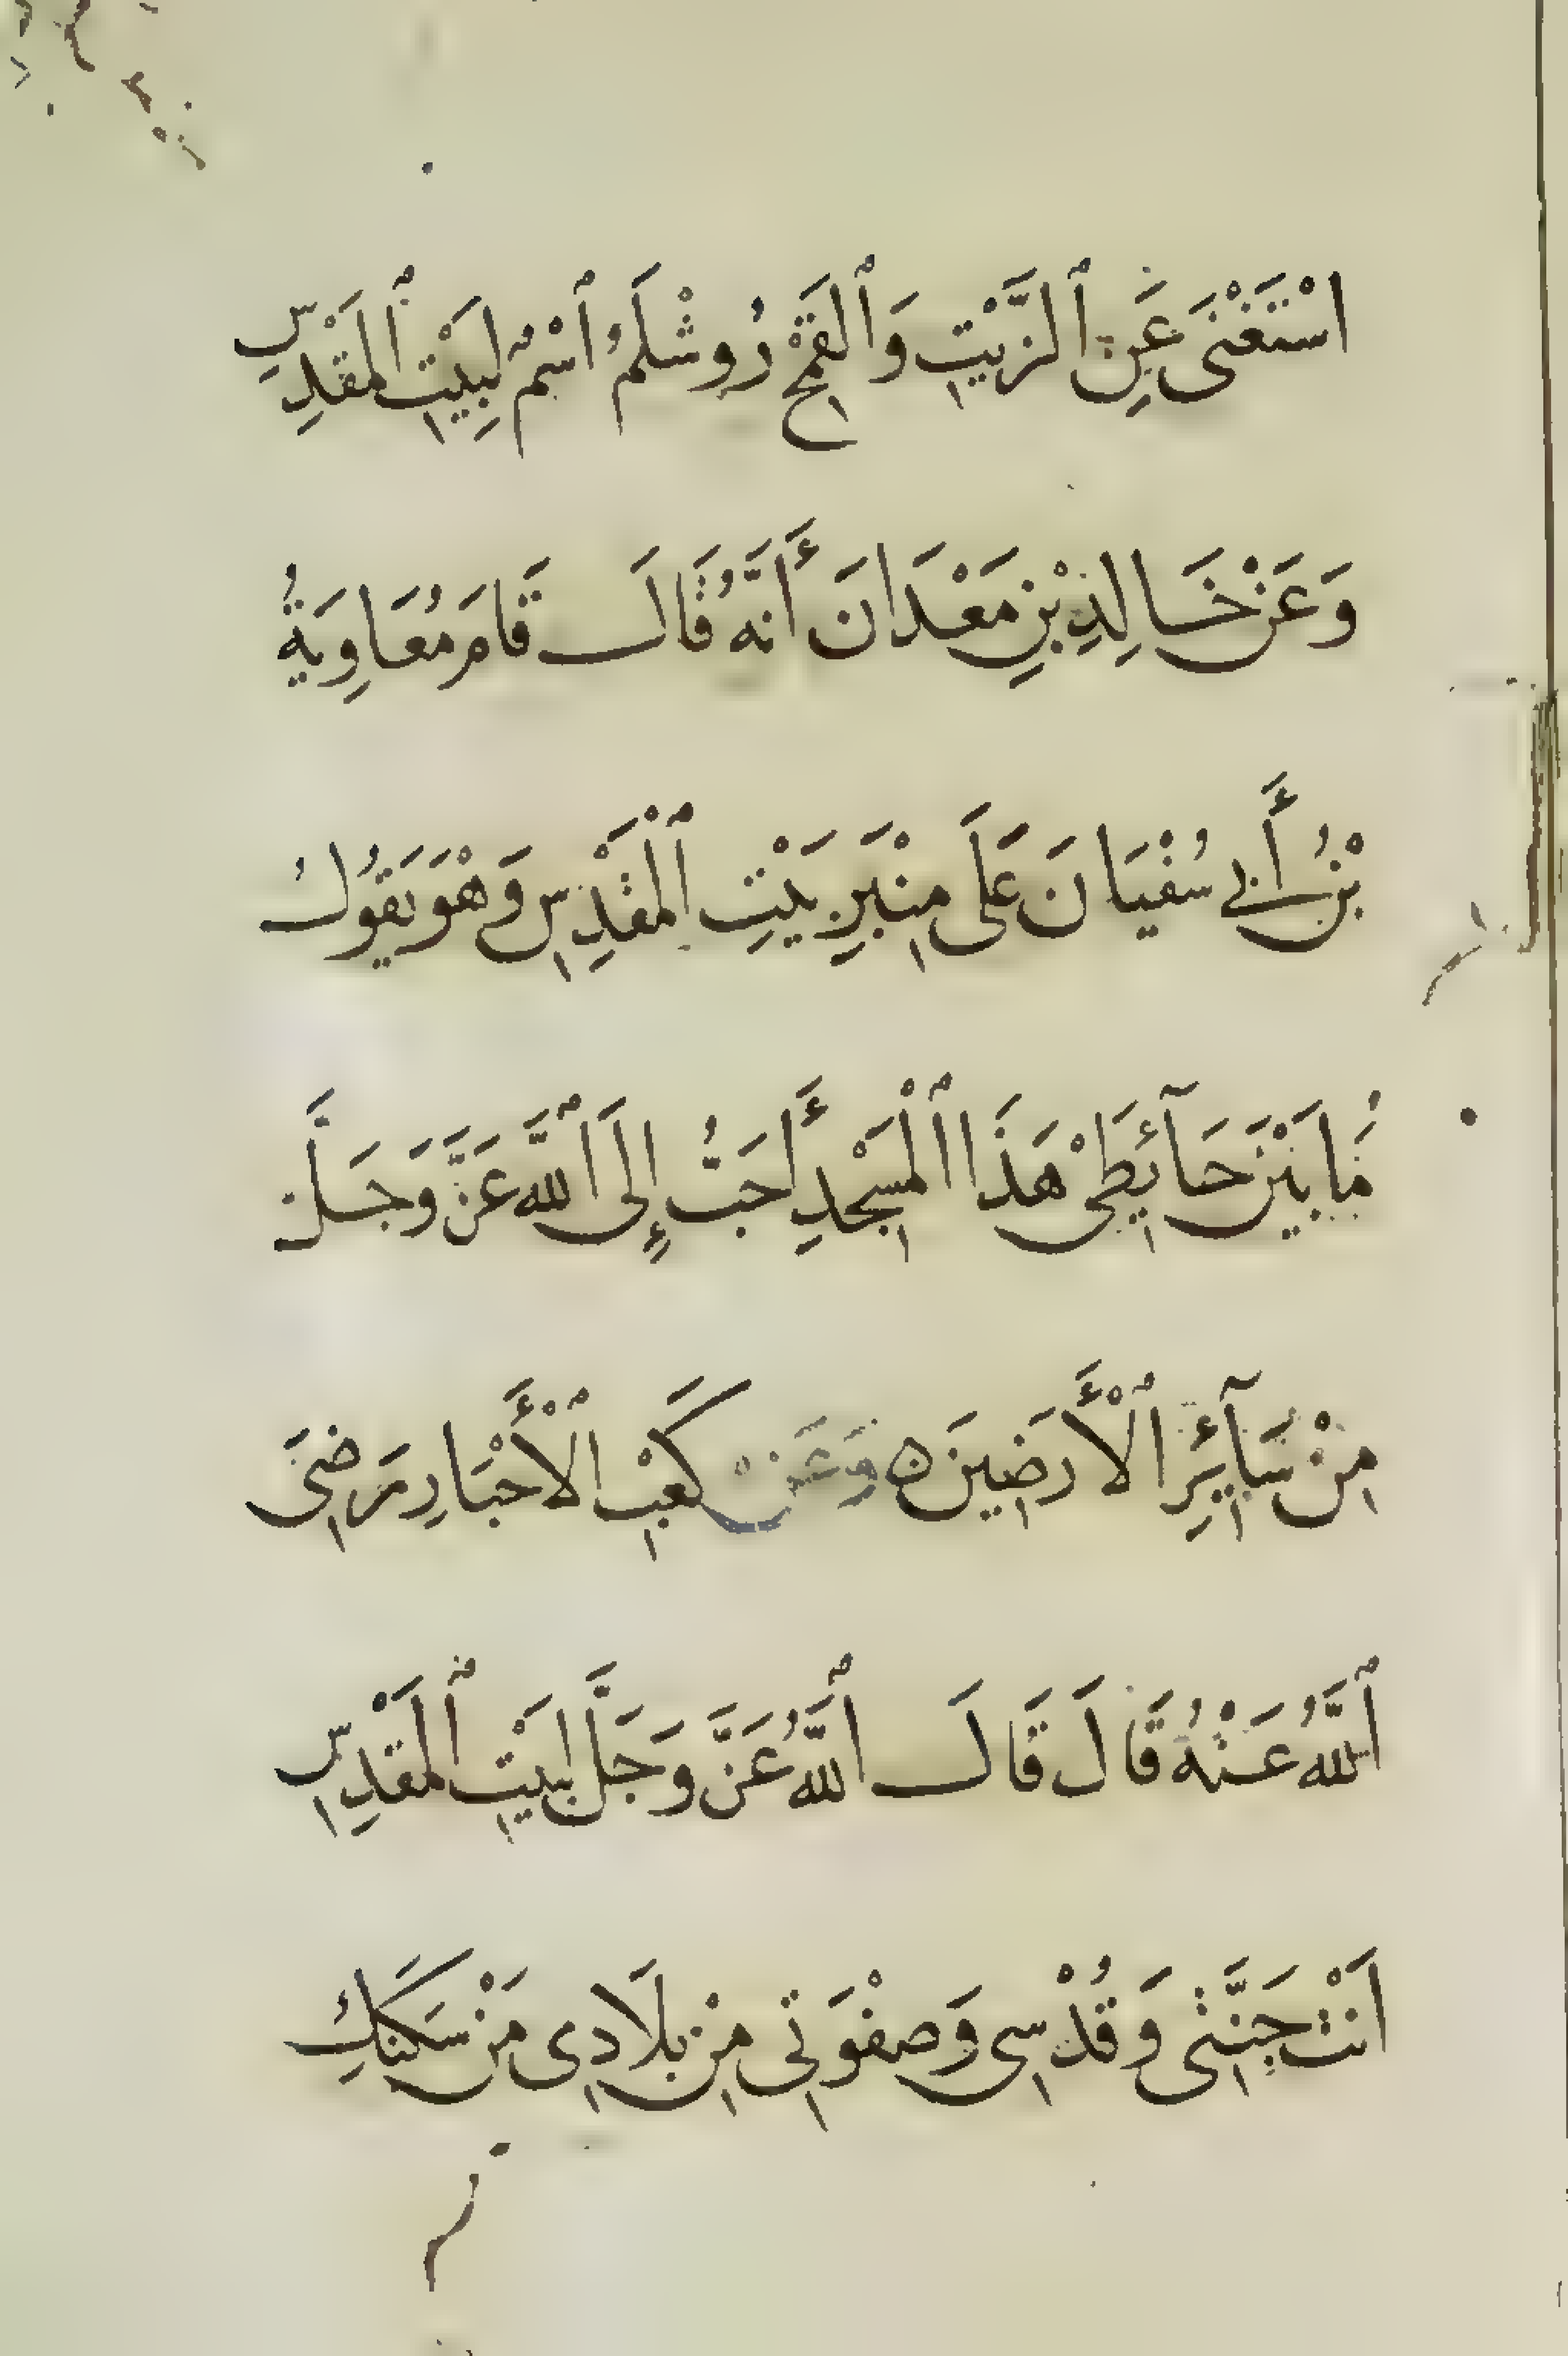 اسْتَغْنَى عَنِ ٱلزَّيْتِ وَٱلْقَمْحِ رُوشَلَمُ ٱسْمٌ لِبَيْتِ ٱلْمَقْدِسِ
وَعَنْ خَالِدِ بْنِ مَعْدَانَ أَنَّهُ قَالَ قَامَ مُعَاوِيَةُ
بْنُ أَبِي سُفْيَانَ عَلَى مِنْبَرِ بَيْتِ ٱلْمَقْدِسِ وَهْوَ يَقُولُ
مَا بَيْنَ حَآئِطَىْ هَذَا ٱلْمَسْجِدِ أَحَبُّ إِلَى ٱللَّهِ عَزَّ وَجَلَّ
مِنْ سَآئِرِ ٱلْأَرَضِينَ ه وَعَنْ كَعْبِ ٱلْأَحْبَارِ رَضِىَ
ٱللَّهُ عَنْهُ قَالَ قَالَ ٱللَّهُ عَزَّ وَجَلَّ لِبَيْتِ ٱلْمَقْدِسِ
اَنْتِ جَنَّتِى وَقُدْسِى وَصِفْوَتِى مِنْ بِلَادِى مَنْ سَكَنَكِ